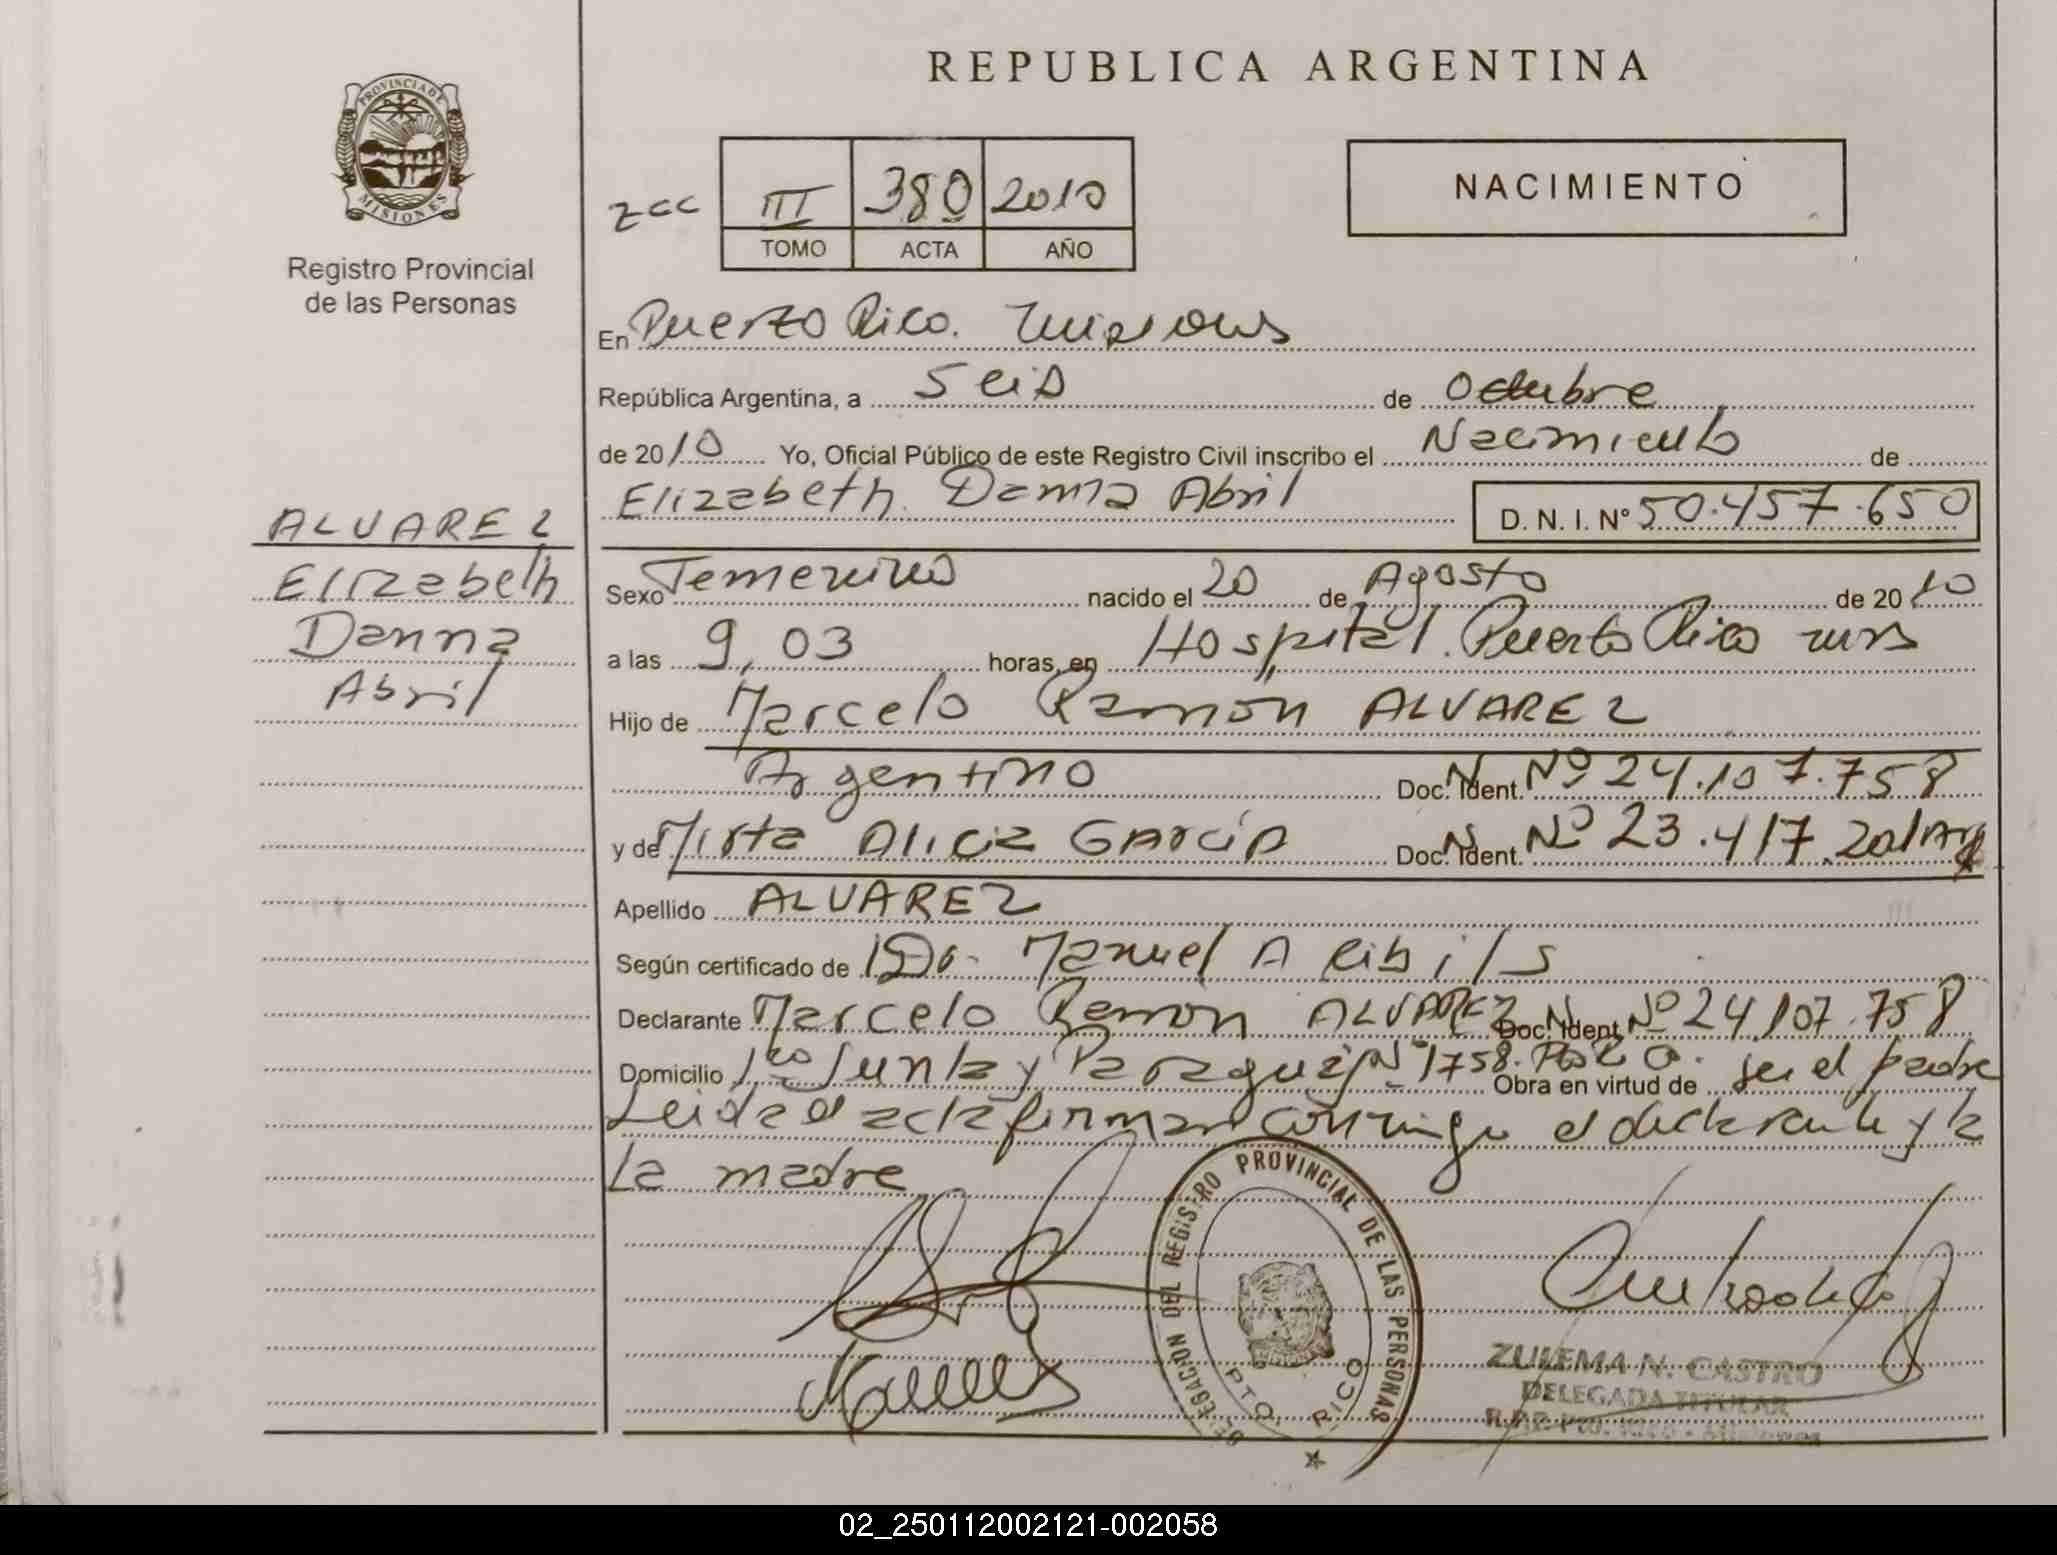 REPUBLICA ARGENTINA
PROVINCIA DE MISIONES
Registro Provincial
de las Personas
NACIMIENTO
III 380 2010
TOMO ACTA AÑO
En Puerto Rico. Misiones
República Argentina, a Seis de Octubre
de 2010 Yo, Oficial Público de este Registro Civil inscribo el Nacimiento de
Elizabeth Danna Abril D. N. I. N° 50.457.650
ALVAREZ
Elizabeth
Danna
Abril
Sexo Femenino nacido el 20 de Agosto de 2010
a las 9,03 horas, en Hospital. Puerto Rico mns
Hijo de Marcelo Ramón ALVAREZ
Argentino Doc. Ident. N Nº 24.107.758
y de Mirta Alicia GARCÍA Doc. Ident. N Nº 23.417.201 Arg
Apellido ALVAREZ
Según certificado de Dr. Manuel A
Declarante Marcelo Ramon ALVAREZ Doc. Ident. N Nº 24.107.758
Domicilio 1ro Junta y Paraguay Nº 1758. Obra en virtud de ser el padre
Leida el acta firman conmigo el declarante y la
La madre
DELEGACION DEL REGISTRO PROVINCIAL DE LAS PERSONAS
PTO. RICO
ZULEMA N. CASTRO
DELEGADA TITULAR
R.P.P. Pto. Rico - Misiones
02_250112002121-002058